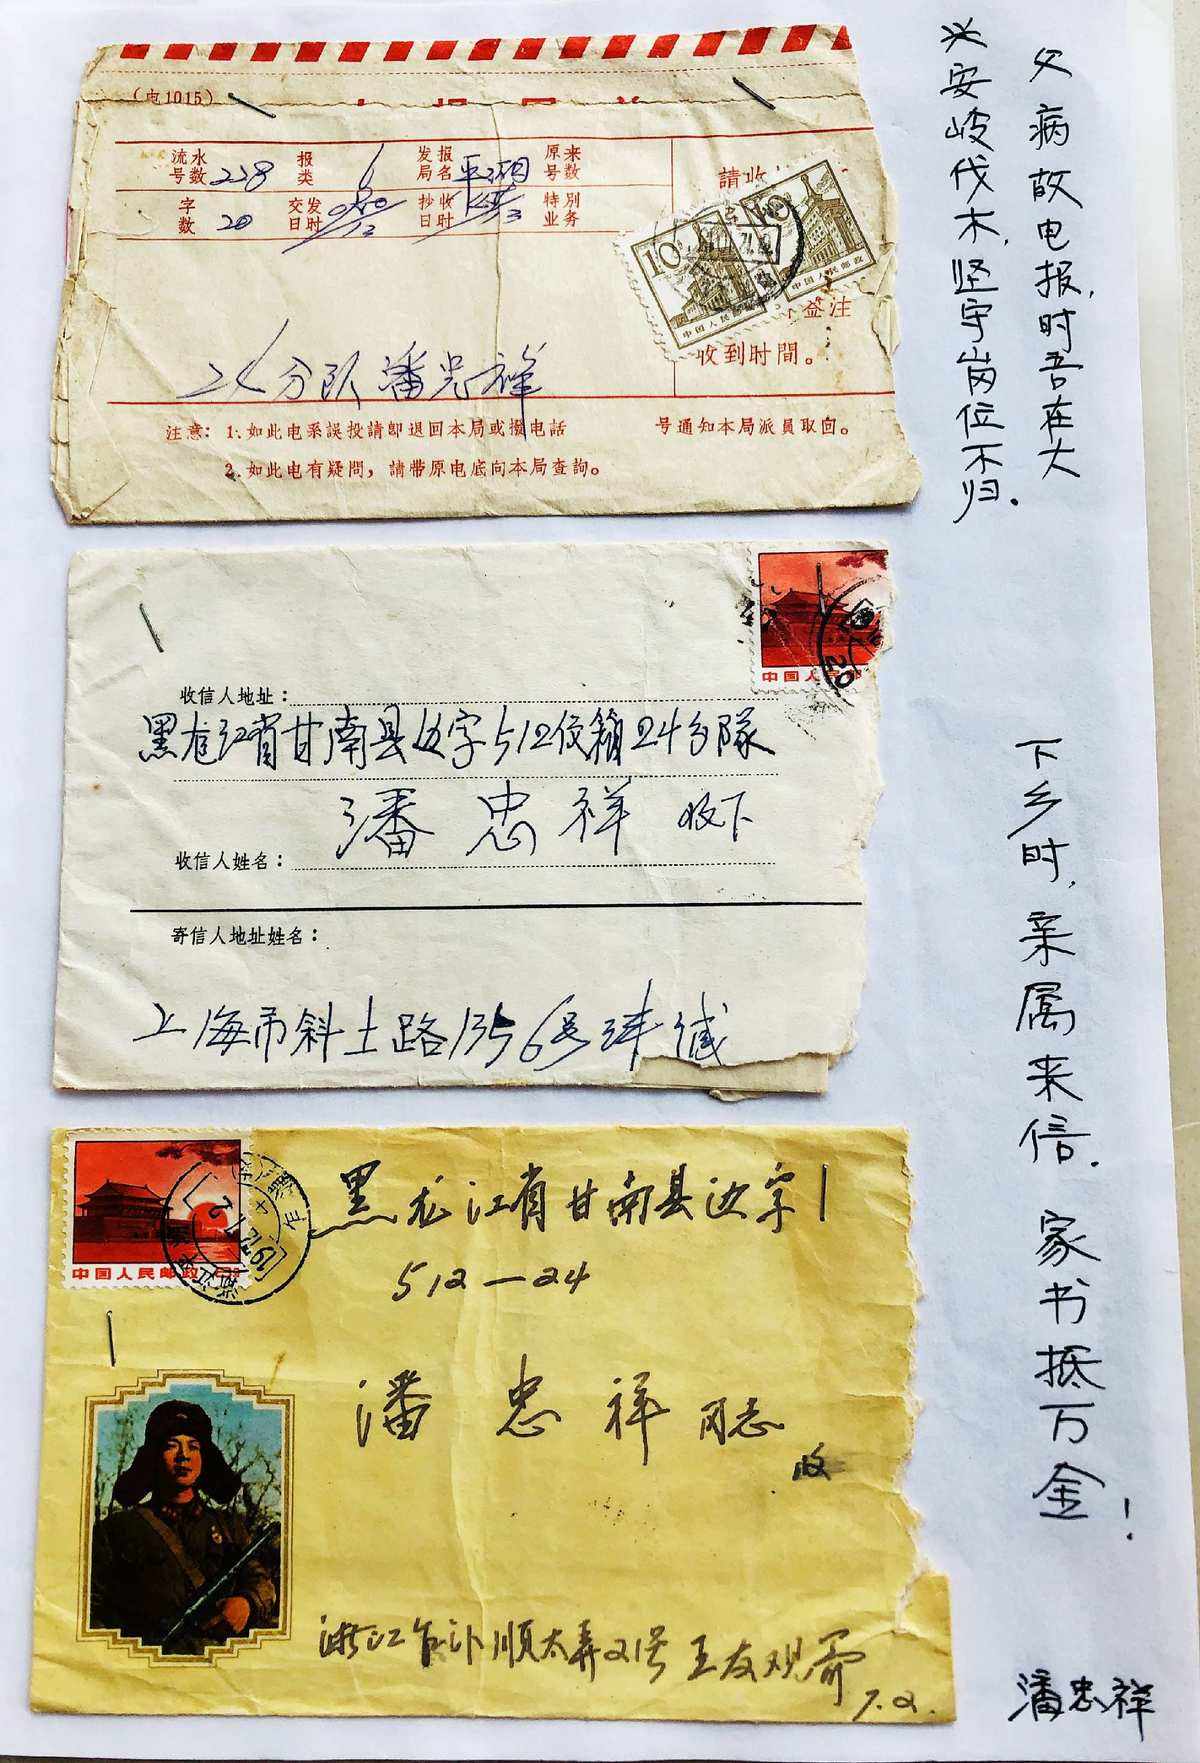 (电1015)
流水号数 228
报类 6
发报局名 平湖
原来号数
字数 20
交发日时
抄收日时
特别业务
請收
签注
收到时間。
24分队潘忠祥
注意：1.如此电系誤投請即退回本局或撥电話 号通知本局派員取回。
2.如此电有疑問，請带原电底向本局查詢。
10
中国人民邮政
中国人民邮政
父病故电报,时吾在大
兴安岐伐木,坚守岗位不归.
中国人民邮
收信人地址：
黑龙江省甘南县边字512信箱24分隊
潘忠祥 收下
收信人姓名：
寄信人地址姓名：
上海市斜土路1356号 缄
下乡时,亲属来信.家书抵万金!
中国人民邮政
黑龙江省甘南县边字
512—24
潘忠祥 同志
收
浙江乍浦顺太弄21号王友观寄
7.2.
潘忠祥